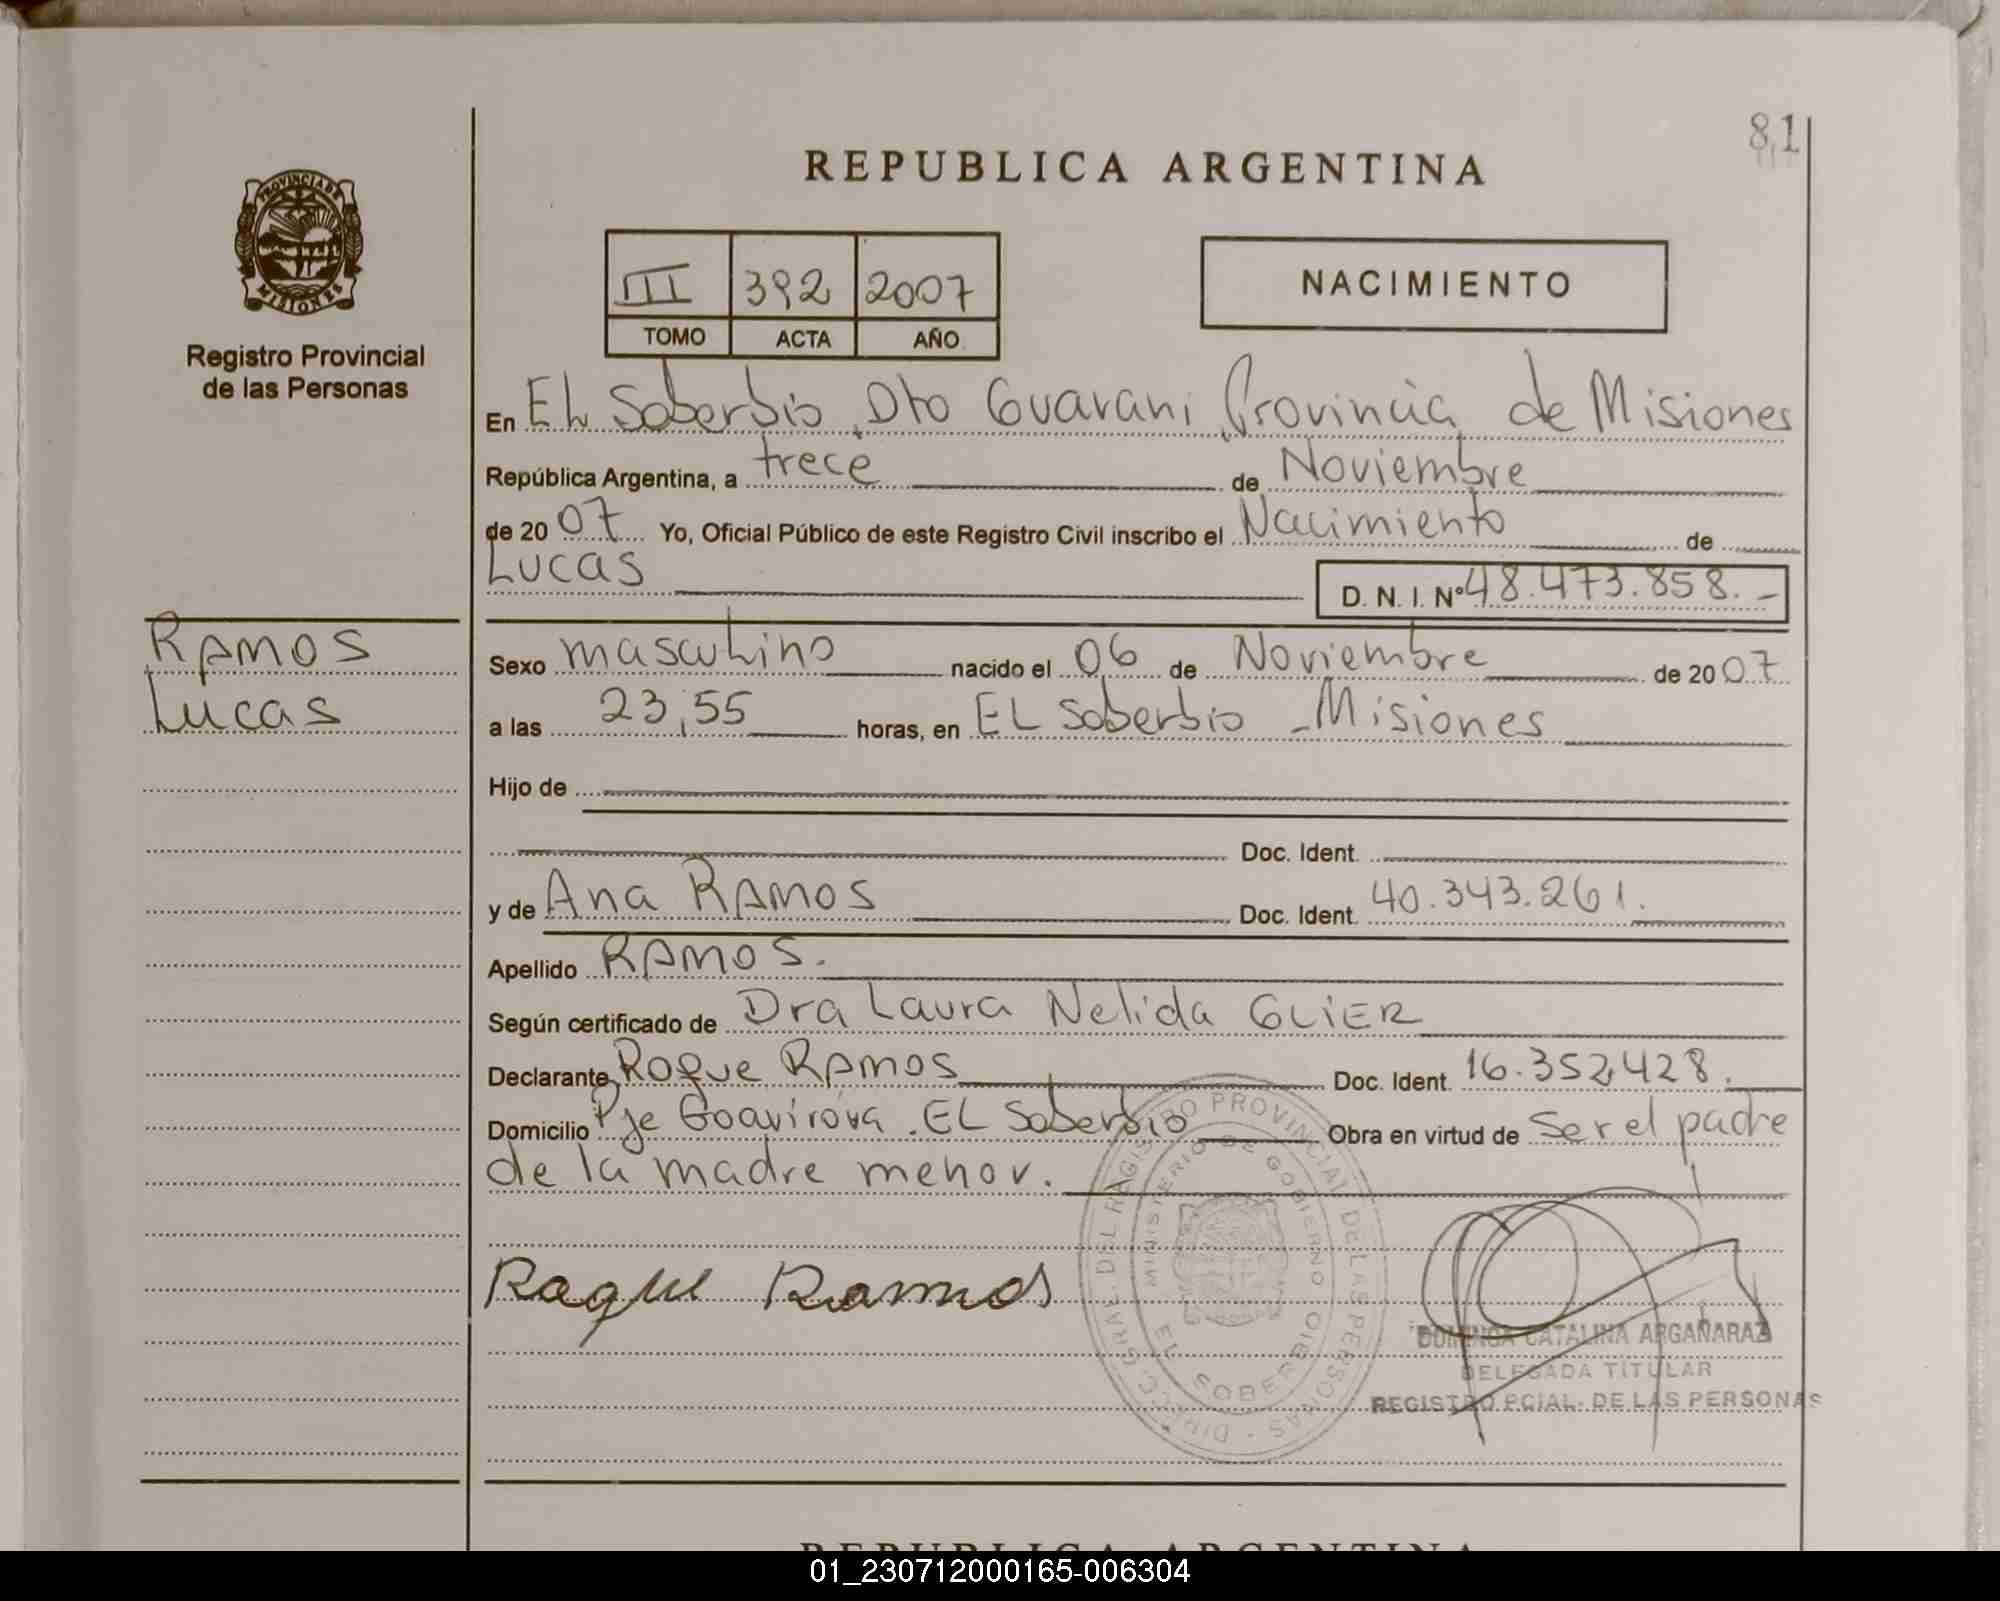 81
REPUBLICA ARGENTINA
PROVINCIA DE
MISIONES
III 392 2007
TOMO ACTA AÑO
NACIMIENTO
Registro Provincial
de las Personas
En EL Soberbio, Dto Guarani, Provincia de Misiones
República Argentina, a trece de Noviembre
de 2007 Yo, Oficial Público de este Registro Civil inscribo el Nacimiento de
Lucas
D. N. I. Nº 48.473.858.-
RAMOS
Lucas
Sexo masculino nacido el 06 de Noviembre de 2007
a las 23,55 horas, en EL Soberbio - Misiones
Hijo de
Doc. Ident.
y de Ana RAMOS Doc. Ident. 40.343.261.
Apellido RAMOS.
Según certificado de Dra Laura Nelida GLIER
Declarante Roque RAMOS Doc. Ident. 16.352.428.
Domicilio Pje EL Soberbio Obra en virtud de Ser el padre
de la madre menor.
Roque Ramos
DIREC. GRAL. DEL REGISTRO PROVINCIAL DE LAS PERSONAS
MINISTERIO DE GOBIERNO
EL SOBERBIO
DOMINGA CATALINA ARGAÑARAZ
DELEGADA TITULAR
REGISTRO PCIAL. DE LAS PERSONAS
REPUBLICA ARGENTINA
01_230712000165-006304